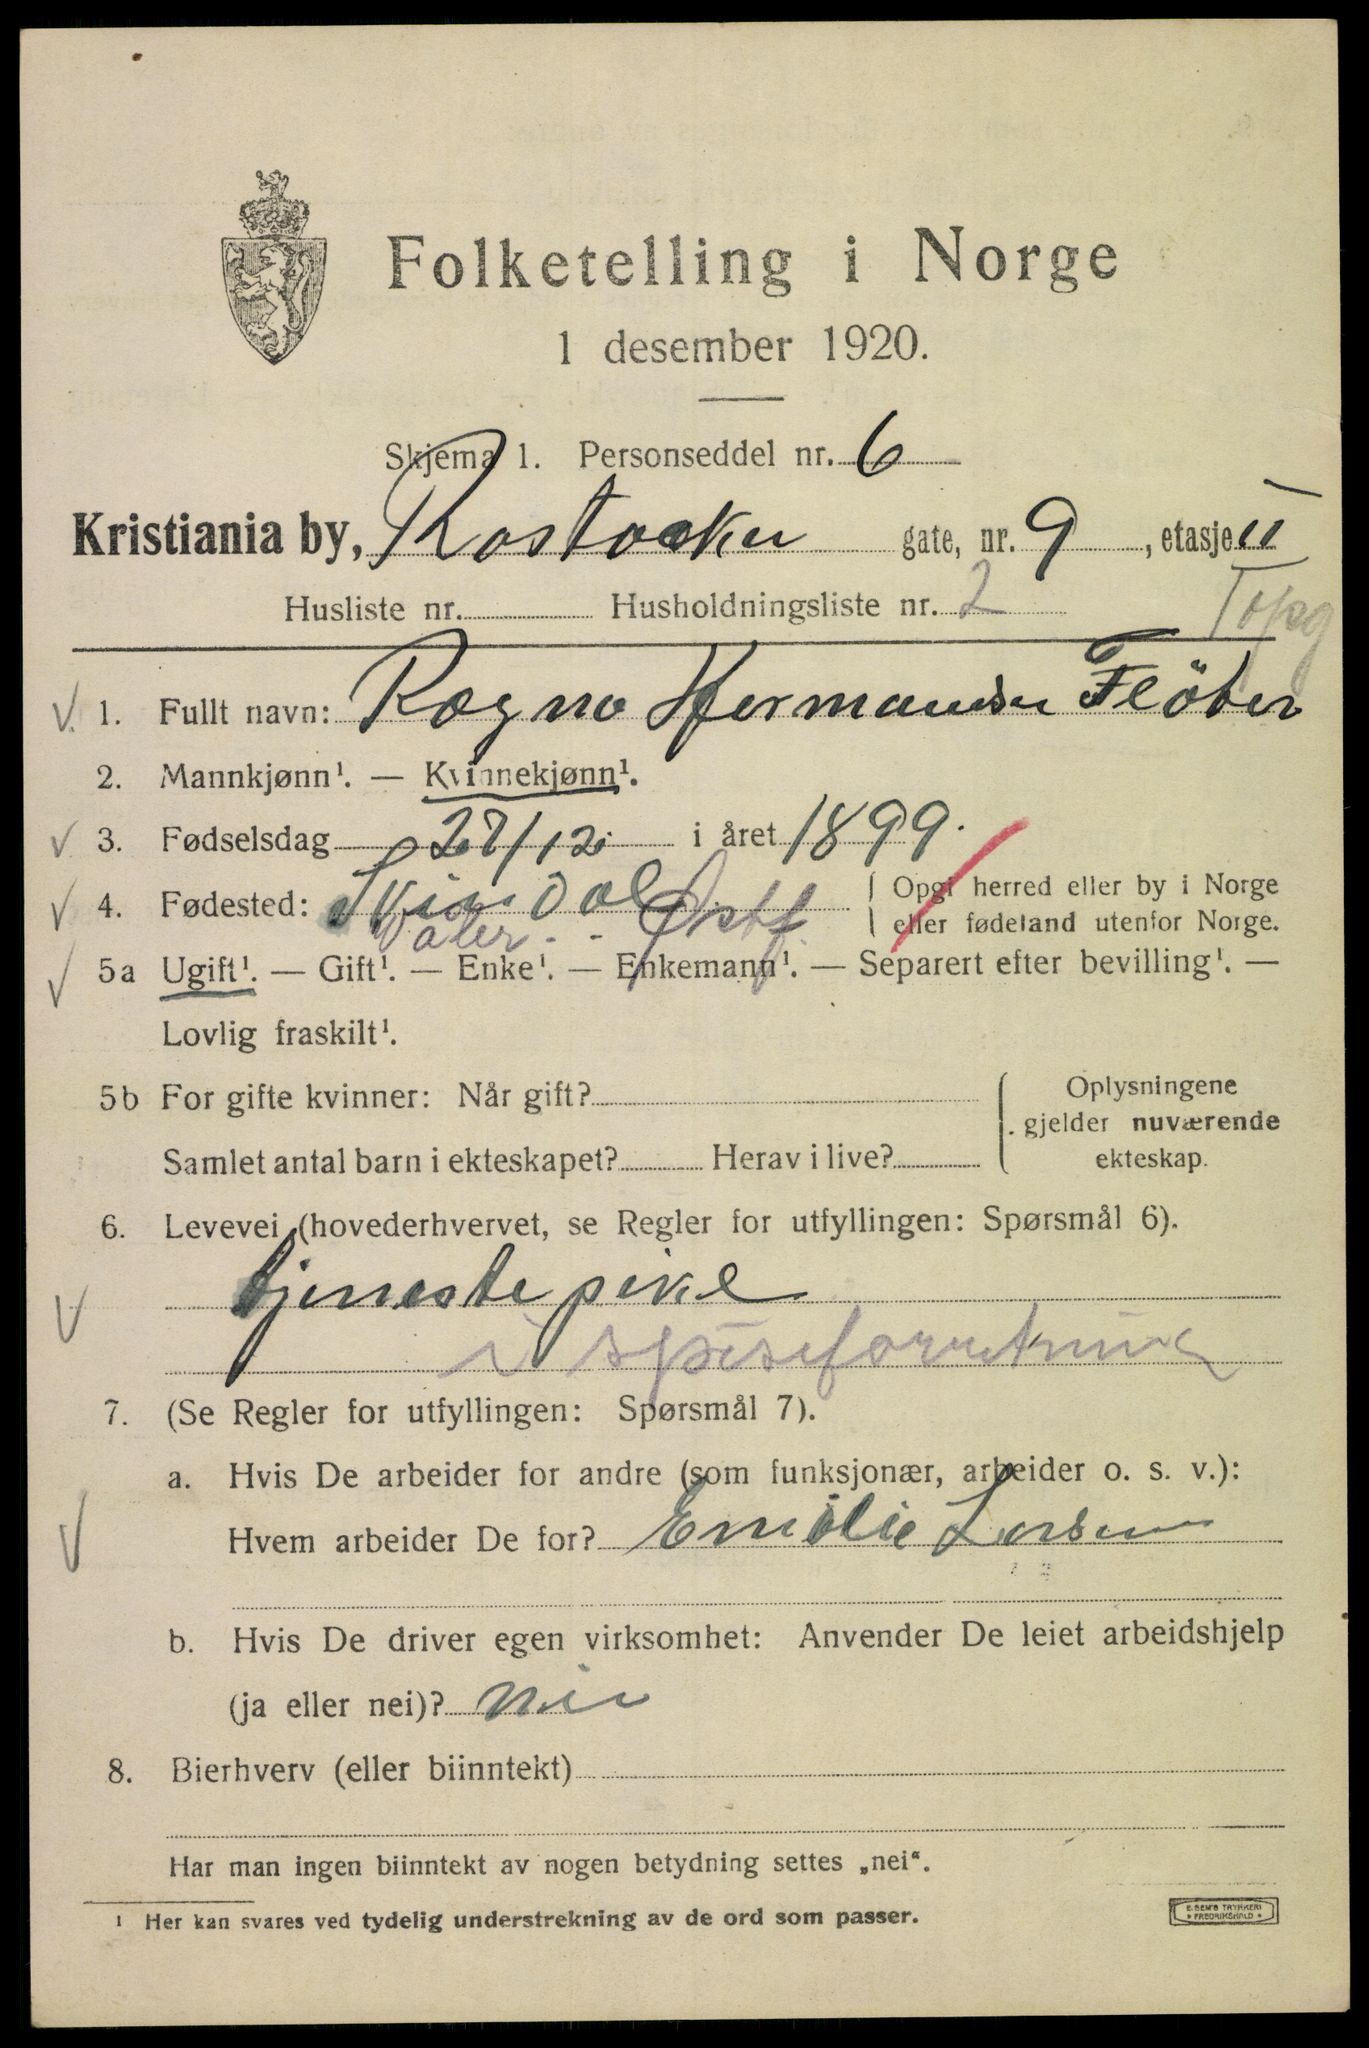 Folketelling i Norge
1 desember 1920.
Skjema 1. Personseddel nr. 6
Kristiania by, Rostocker gate, nr. 9, etasje II
Husliste nr. Husholdningsliste nr. 2
1. Fullt navn: Ragna Hermansen Fløter
2. Mannkjønn¹. — Kvinnekjønn¹.
3. Fødselsdag 27/12 i året 1899.
4. Fødested: Svindal Østf. { Opgi herred eller by i Norge
Våler { eller fødeland utenfor Norge.
5a Ugift¹. — Gift¹. — Enke¹. — Enkemann¹. — Separert efter bevilling¹. —
Lovlig fraskilt¹.
5b For gifte kvinner: Når gift? { Oplysningene
gjelder nuværende
Samlet antal barn i ekteskapet? Herav i live? ekteskap.
6. Levevei (hovederhvervet, se Regler for utfyllingen: Spørsmål 6).
tjenestepike
i spiseforretning
7. (Se Regler for utfyllingen: Spørsmål 7).
a. Hvis De arbeider for andre (som funksjonær, arbeider o. s. v.):
Hvem arbeider De for? Emilie Larsen
b. Hvis De driver egen virksomhet: Anvender De leiet arbeidshjelp
(ja eller nei)? nei
8. Bierhverv (eller biinntekt)
Har man ingen biinntekt av nogen betydning settes „nei“.
¹ Her kan svares ved tydelig understrekning av de ord som passer.
E. SEM'S TRYKKERI
• FREDRIKSHALD •